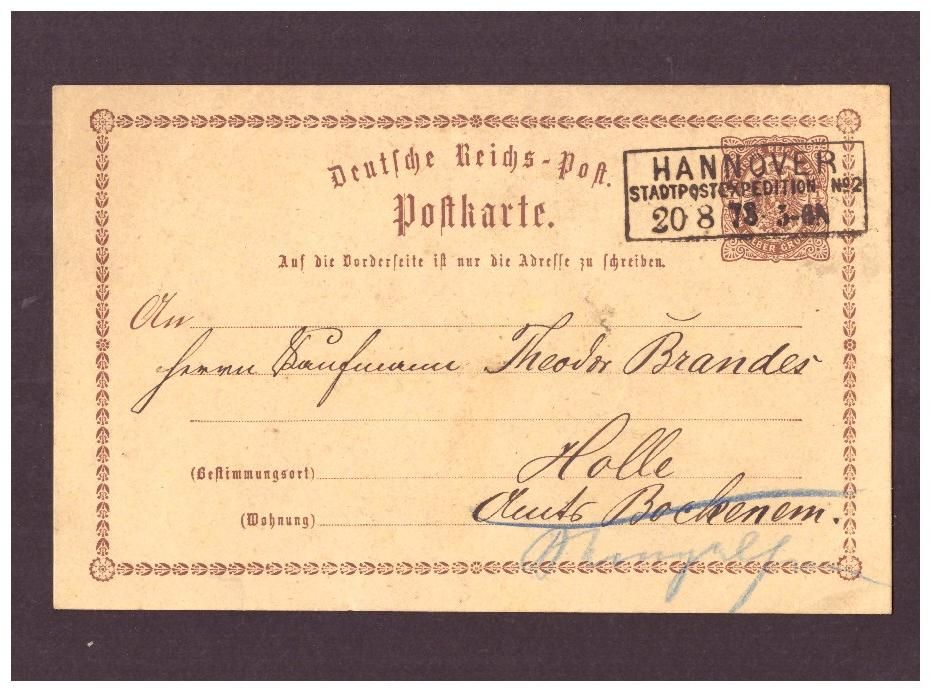 Deutsche Reichs-Post.
Postkarte.
HANNOVER
STADTPOSTEXPEDITION No 2
20 8 73 3-6N
Auf die Vorderseite ist nur die Adresse zu schreiben.
An
Herrn Kaufmann Theodor Brandes
(Bestimmungsort) Holle
(Wohnung) Amts Bockenem.